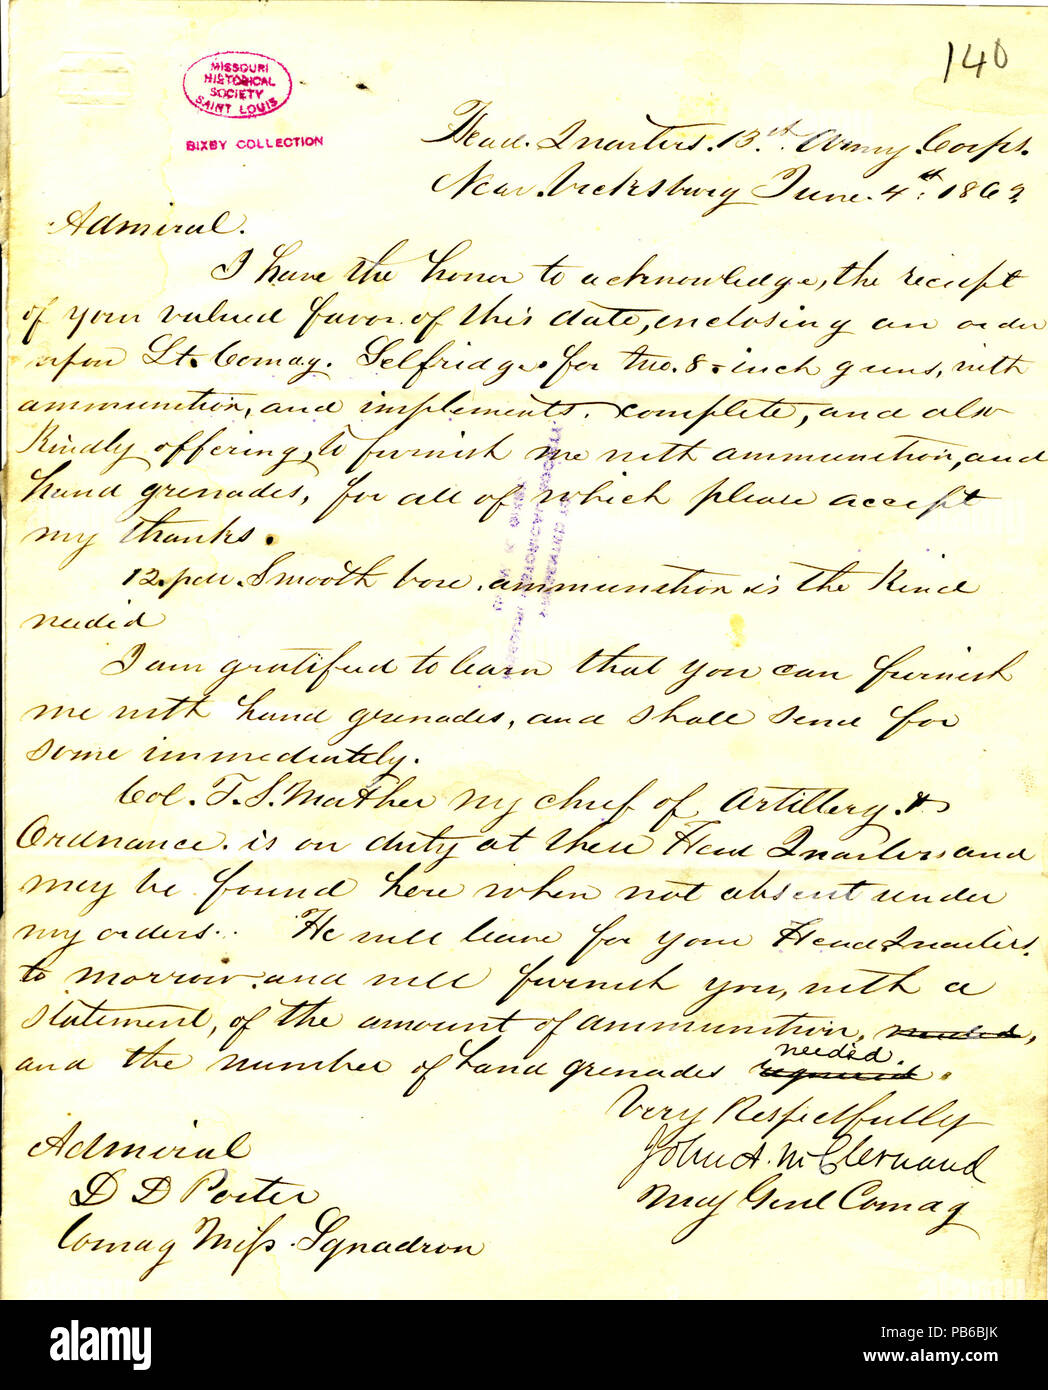 140
MISSOURI
HISTORICAL
SOCIETY
SAINT LOUIS
BIXBY COLLECTION
Head. Quarters. 13th. Army. Corps.
Near. Vicksburg June. 4th. 1863
Admiral.
I have the honor to acknowledge, the reciept
of your valued favor. of this date, enclosing an order
upon Lt. Comdg. Selfridge. for two. 8-inch guns, with
ammunition, and implements. complete, and also
Kindly offering, to furnish me with ammunition, and
hand grenades, for all of which please accept
my thanks.
12.pdr. Smooth bore. ammunition is the Kind
needed
I am gratified to learn that you can furnish
me with hand grenades, and shall send for
some immediately.
Col. T. S. Mather my chief of Artillery. &
Ordnance. is on duty at these Head Quarters and
may be found here when not absent under
my orders. He will leave for your Head Quarters.
to morrow. and will furnish you, with a
statement, of the amount of ammunition, needed,
and the number of hand grenades required.
needed.
Very Respectfully
John A. McClernand
Maj Genl Comdg
Admiral
D D Porter
Comdg Miss. Squadron
alamy
Image ID: PB6BJK
www.alamy.com